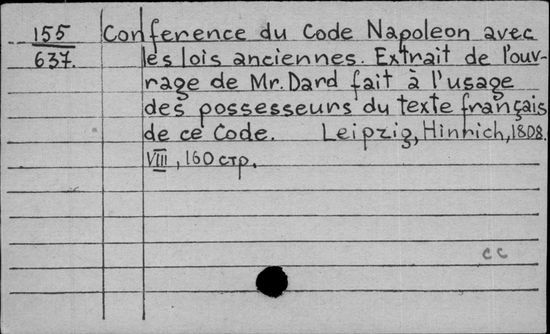 155 Conference du Code Napoleon avec
637. les lois anciennes. Extrait de l'ouv-
rage de Mr. Dard fait à l'usage
des possesseurs du texte français
de ce Code. Leipzig, Hinrich, 1808.
VIII, 160 стр.
cc